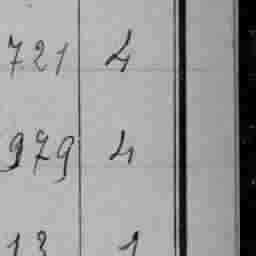 721 4
979 4
13 1